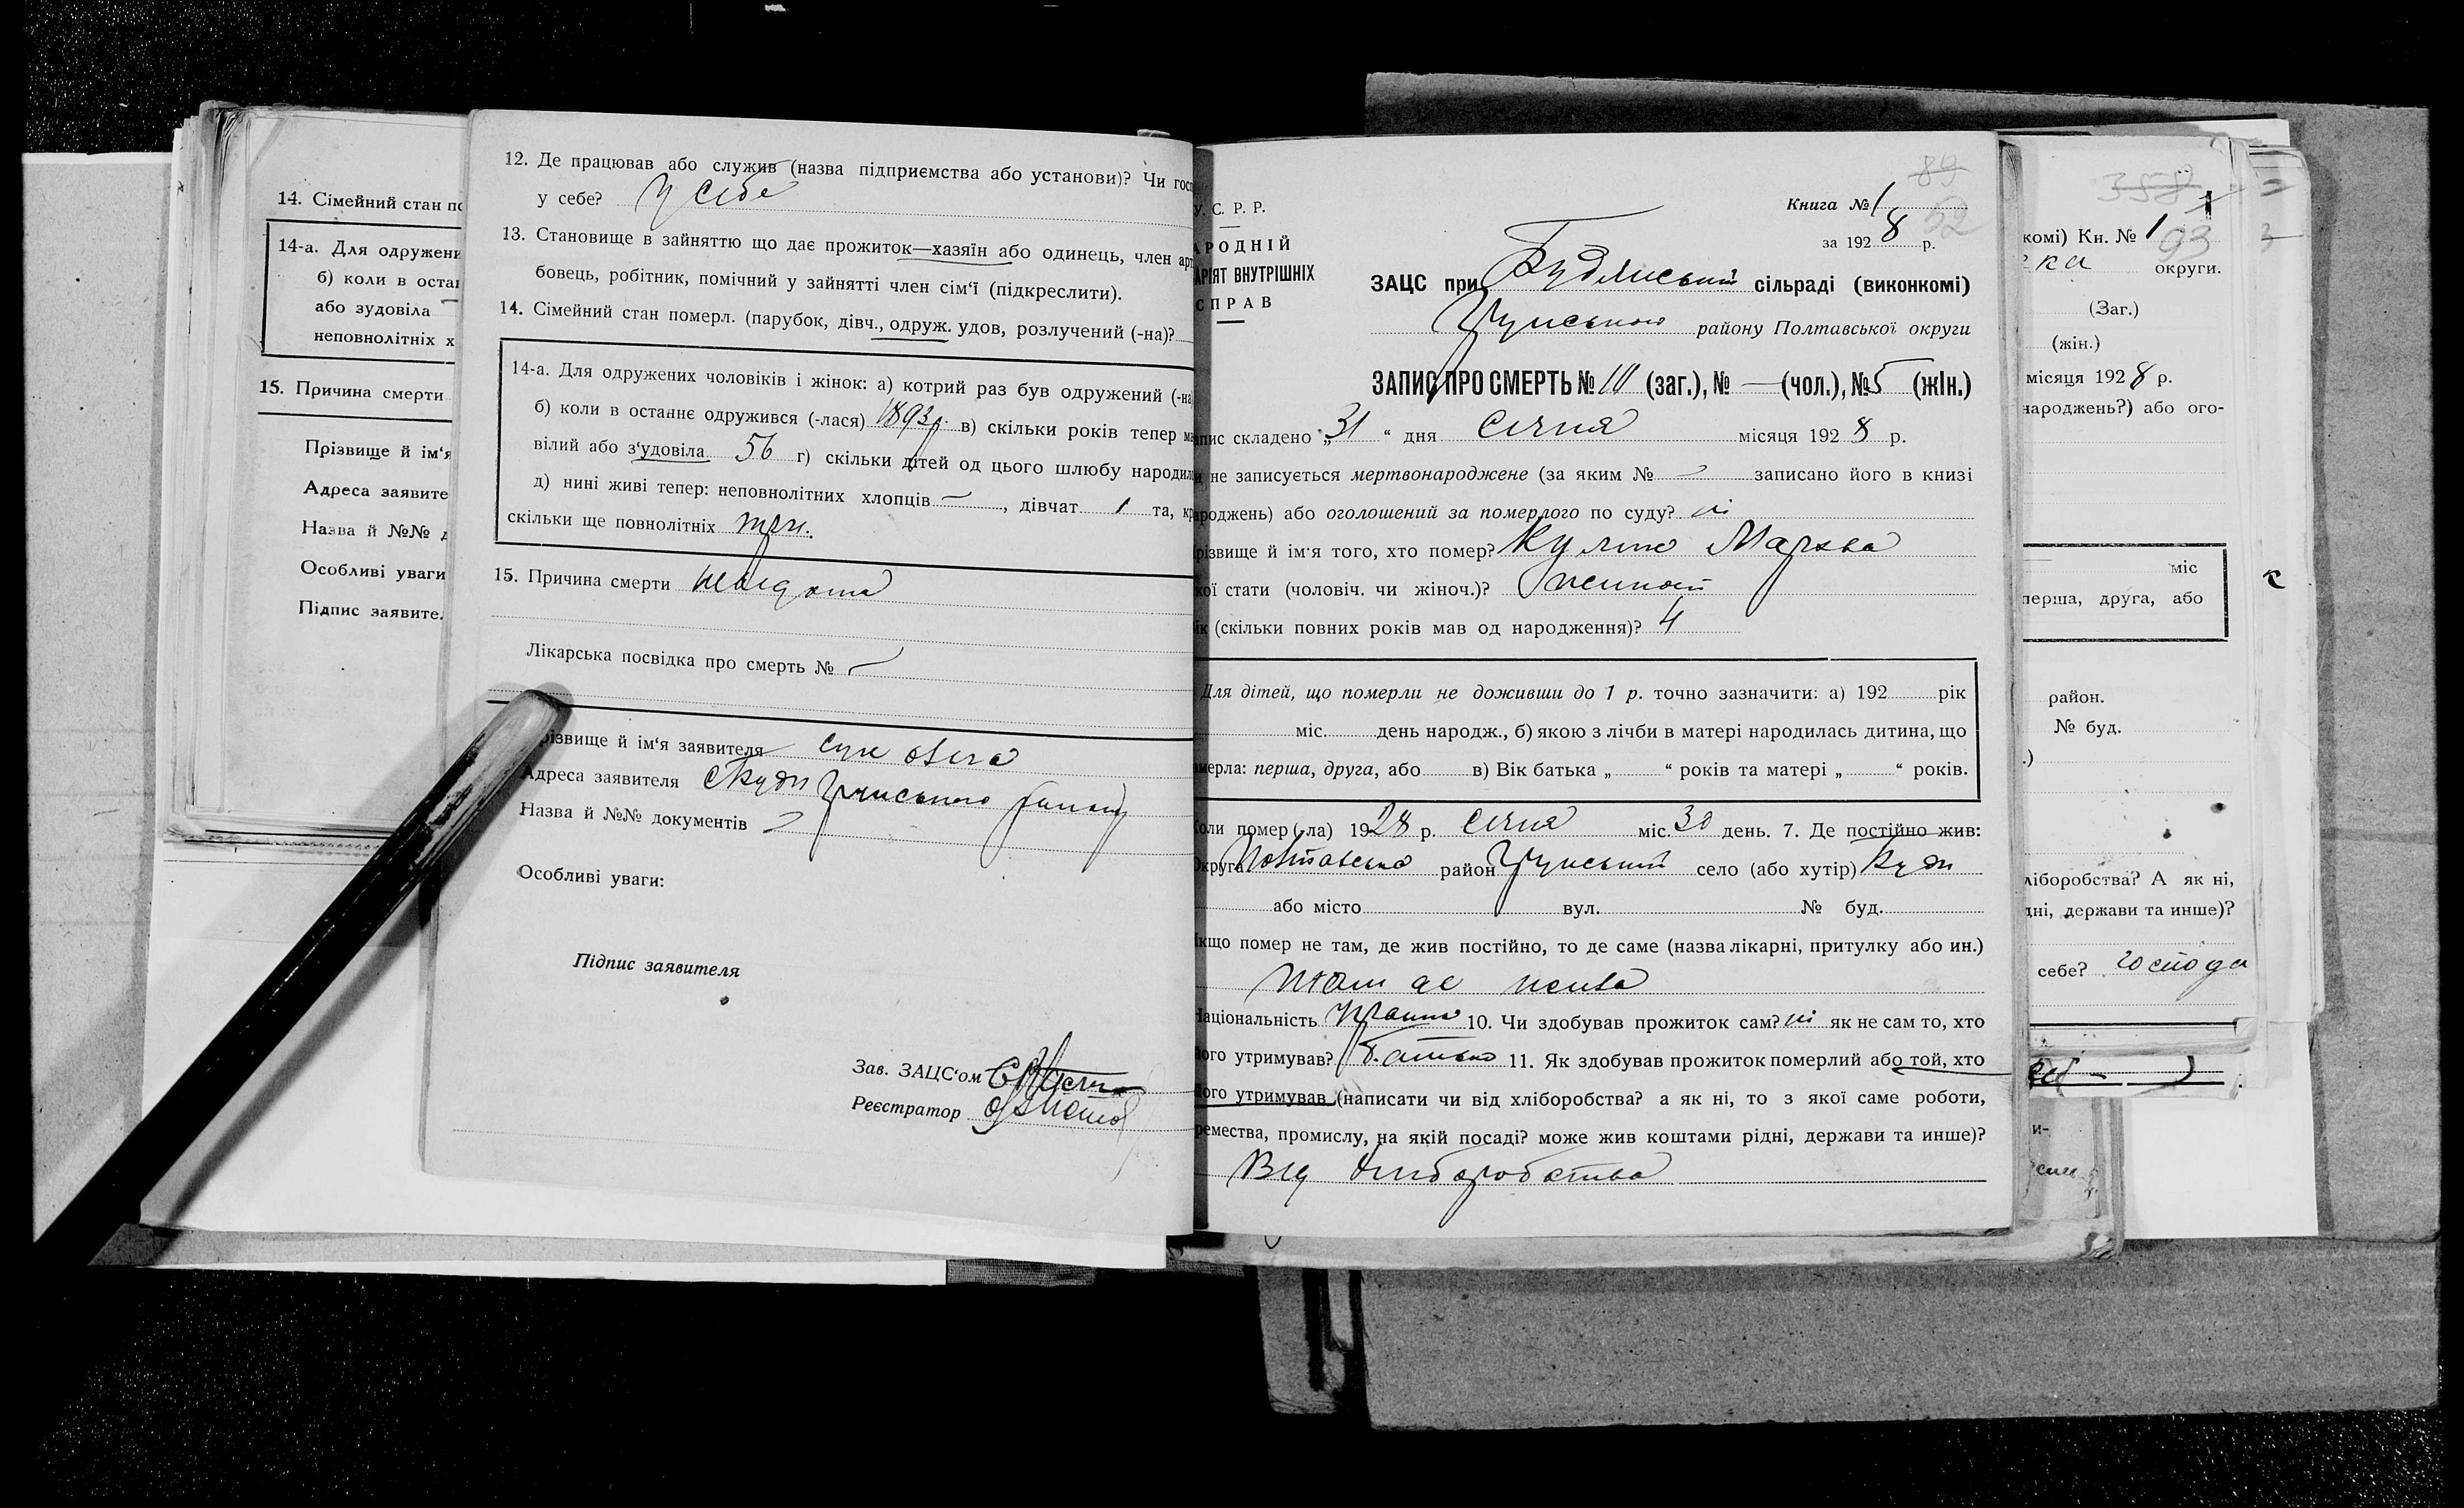 14. Сімейний стан по
14-а. Для одружени
б) коли в остан
або зудовіла
неповнолітніх х
15. Причина смерти
Прізвище й ім‘я
Адреса заявите
Назва й №№ д
Особливі уваги
Підпис заявите
12. Де працював або служив (назва підприємства або установи)? Чи госп
у себе? у себе
13. Становище в зайняттю що дає прожиток—хазяїн або одинець, член арт
бовець, робітник, помічний у зайнятті член сім‘ї (підкреслити).
14. Сімейний стан померл. (парубок, дівч., одруж. удов, розлучений (-на)?
14-а. Для одружених чоловіків і жінок: а) котрий раз був одружений (-на
б) коли в останнє одружився (-лася) 1893р. в) скільки років тепер ма
вілий або з‘удовіла 56 г) скільки дітей од цього шлюбу народил
д) нині живі тепер: неповнолітних хлопців —, дівчат 1 та, кр
скільки ще повнолітніх три.
15. Причина смерти невідома
Лікарська посвідка про смерть № —
різвище й ім‘я заявителя
Адреса заявителя
Назва й №№ документів
Особливі уваги:
Підпис заявителя
Зав. ЗАЦС‘ом
Реєстратор
89
52
Книга № 1
за 1928 р.
У. С. Р. Р.
АРОДНІЙ
АРІЯТ ВНУТРІШНІХ
СПРАВ
ЗАЦС при сільраді (виконкомі)
району Полтавської округи
ЗАПИС ПРО СМЕРТЬ № 10 (заг.), № — (чол.), № 5 (жін.)
пис складено „31“ дня січня місяця 1928 р.
и не записується мертвонароджене (за яким № — записано його в книзі
ароджень) або оголошений за померлого по суду? ні
різвище й ім‘я того, хто помер? Мархва
кої стати (чоловіч. чи жіноч.)?
ік (скільки повних років мав од народження)? 4
Для дітей, що померли не доживши до 1 р. точно зазначити: а) 192 рік
міс. день народж., б) якою з лічби в матері народилась дитина, що
мерла: перша, друга, або в) Вік батька „ “ років та матері „ “ років.
Коли помер (-ла) 1928 р. січня міс. 30 день. 7. Де постійно жив:
Округа Полтавська район село (або хутір)
або місто вул. № буд.
Якщо помер не там, де жив постійно, то де саме (назва лікарні, притулку або ин.)
там де жила
Національність 10. Чи здобував прожиток сам? ні як не сам то, хто
його утримував? батько 11. Як здобував прожиток померлий або той, хто
його утримував (написати чи від хліборобства? а як ні, то з якої саме роботи,
ремества, промислу, на якій посаді? може жив коштами рідні, держави та инше)?
Від хліборобства
358
1
93
комі) Кн. № 1
ка округи.
(Заг.)
(жін.)
місяця 1928 р.
народжень?) або ого-
міс
перша, друга, або
район.
№ буд.
.)
ліборобства? А як ні,
дні, держави та инше)?
себе? господа
и-